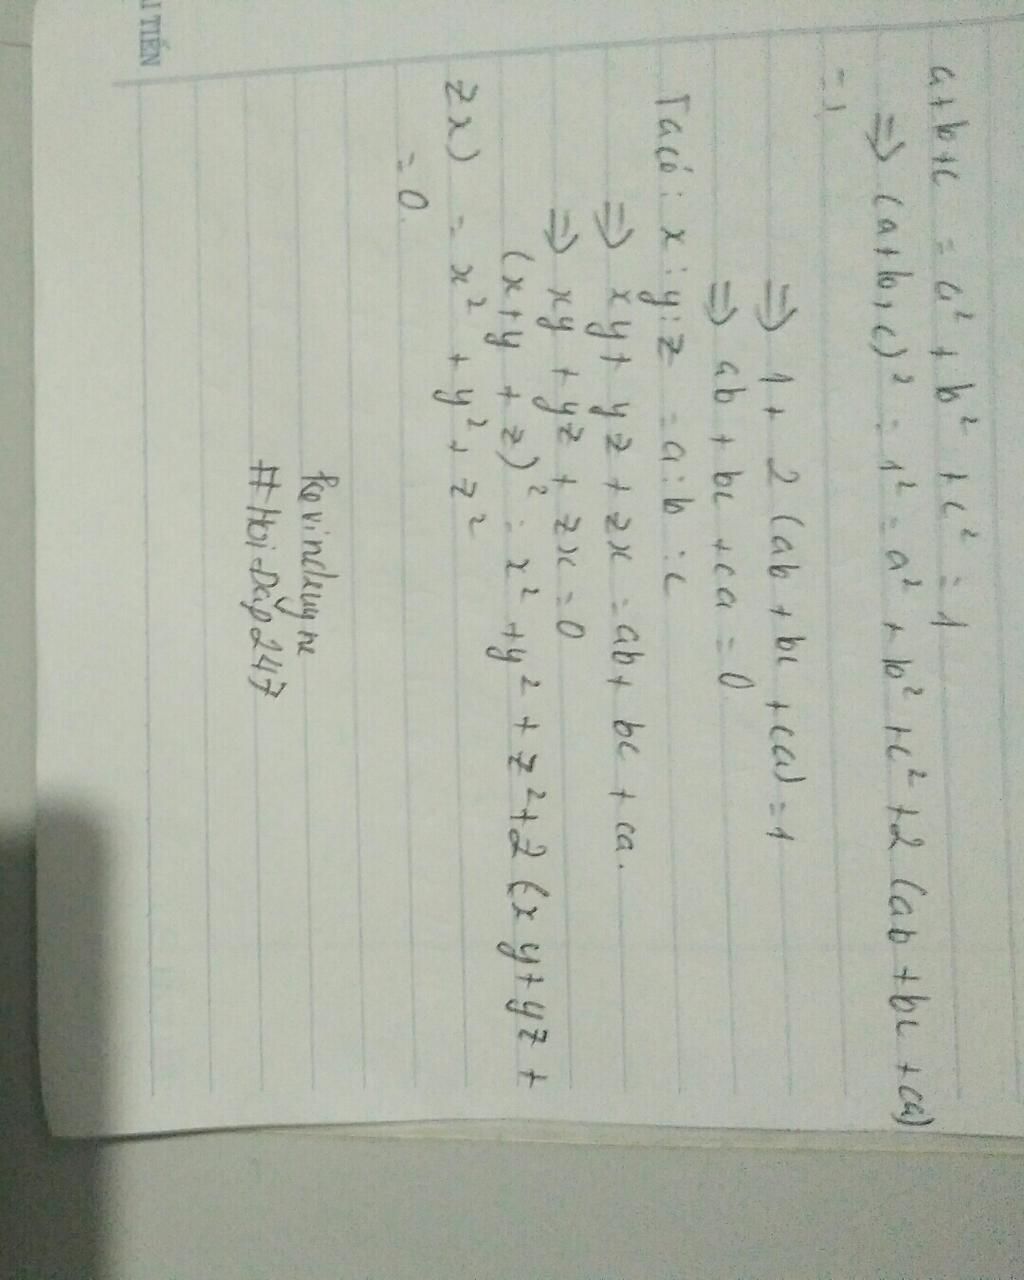 a+b+c = a² + b² + c² = 1
⇒ (a+b+c)² = 1² = a² + b² + c² + 2 (ab + bc + ca)
= 1
⇒ 1 + 2 (ab + bc + ca) = 1
⇒ ab + bc + ca = 0
Ta có : x : y : z = a : b : c
⇒ xy + yz + zx = ab + bc + ca.
⇒ xy + yz + zx = 0
(x + y + z)² = x² + y² + z² + 2 (xy + yz +
zx) = x² + y² + z²
= 0.
#HoiDap247
I TIẾN